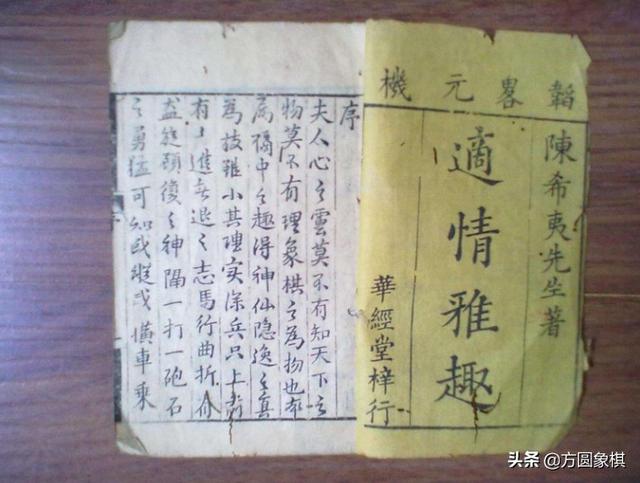 韜畧元機
陳希夷先生著
適情雅趣
華經堂梓行
序
夫人心之靈莫不有知天下之
物莫不有理象棋之為物也本
属橘中之趣得神仙隐逸之真
為技雖小其理实深兵只上前
有進无退之志馬行曲折有
頗復之神隔一打一砲石
之勇猛可知或縱或橫車乘
头条 @方圆象棋